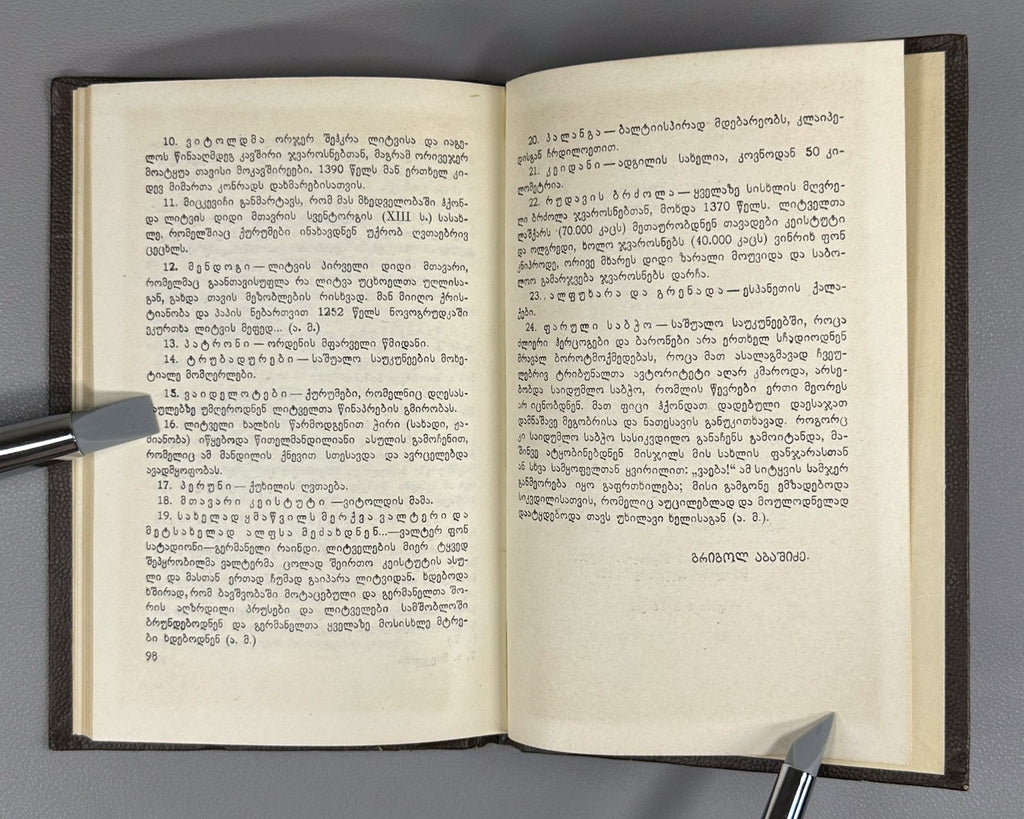 10. ვიტოლდმა ორჯერ შეჰკრა ლიტვისა და იაგე-
ლოს წინააღმდეგ კავშირი ჯვაროსნებთან, მაგრამ ორივეჯერ
მოატყუა თავისი მოკავშირეები. 1390 წელს მან ერთხელ კი-
დევ მიმართა კონრადს დახმარებისათვის.
11. მიცკევიჩი განმარტავს, რომ მას მხედველობაში ჰქონ-
და ლიტვის დიდი მთავრის სვენტორგის (XIII ს.) სასახ-
ლე, რომელშიაც ქურუმები ინახავდნენ უქრობ ღვთაებრივ
ცეცხლს.
12. მენდოგი — ლიტვის პირველი დიდი მთავარი,
რომელმაც გაანთავისუფლა რა ლიტვა უცხოელთა უღლისა-
გან, გახდა თავის მეზობლების რისხვად. მან მიიღო ქრის-
ტიანობა და პაპის ნებართვით 1252 წელს ნოვოგრუდკაში
ეკურთხა ლიტვის მეფედ... (ა. მ.)
13. პატრონი — ორდენის მფარველი წმიდანი.
14. ტრუბადურები — საშუალო საუკუნეების მოხე-
ტიალე მომღერლები.
15. ვაიდელოტები — ქურუმები, რომელნიც დღესას-
წაულებზე უმღეროდნენ ლიტველთა წინაპრების გმირობას.
16. ლიტველი ხალხის წარმოდგენით ჭირი (სახადი, ჟა-
მიანობა) იწყებოდა წითელმანდილიანი ასულის გამოჩენით,
რომელიც ამ მანდილის ქნევით სთესავდა და ავრცელებდა
ავადმყოფობას.
17. პერუნი — ქუხილის ღვთაება.
18. მთავარი კეისტუტი — ვიტოლდის მამა.
19. სახელად ყმაწვილს მერქვა ვალტერი და
მეტსახელად ალფსა მეძახდნენ... — ვალტერ ფონ
სტადიონი — გერმანელი რაინდი. ლიტველების მიერ ტყვედ
შეპყრობილმა ვალტერმა ცოლად შეირთო კეისტუტის ასუ-
ლი და მასთან ერთად ჩუმად გაიპარა ლიტვიდან. ხდებოდა
ხშირად, რომ ბავშვობაში მოტაცებული და გერმანელთა შო-
რის აღზრდილი პრუსები და ლიტველები სამშობლოში
ბრუნდებოდნენ და გერმანელთა ყველაზე მოსისხლე მტრე-
ბი ხდებოდნენ (ა. მ.)
98
20. პალანგა — ბალტიისპირად მდებარეობს, კლაიპე-
დისგან ჩრდილოეთით.
21. კეიდანი — ადგილის სახელია, კოვნოდან 50 კი-
ლომეტრია.
22. რუდავის ბრძოლა — ყველაზე სისხლის მღვრე-
ლი ბრძოლა ჯვაროსნებთან, მოხდა 1370 წელს. ლიტველთა
ლაშქარს (70.000 კაცს) მეთაურობდნენ თავადები კეისტუტი
და ოლგრედი, ხოლო ჯვაროსნებს (40.000 კაცს) ვინრიხ ფონ
კნიპროდე, ორივე მხარეს დიდი ზარალი მოუვიდა და საბო-
ლოო გამარჯვება ჯვაროსნებს დარჩა.
23. ალფუხარა და გრენადა — ესპანეთის ქალა-
ქები.
24. ფარული საბჭო — საშუალო საუკუნეებში, როცა
ძლიერი ჰერცოგები და ბარონები არა ერთხელ სჩადიოდნენ
მრავალ ბოროტმოქმედებას, როცა მათ ასალაგმავად ჩვეუ-
ლებრივ ტრიბუნალთა ავტორიტეტი აღარ კმაროდა, არსე-
ბობდა საიდუმლო საბჭო, რომლის წევრები ერთი მეორეს
არ იცნობდნენ. მათ ფიცი ჰქონდათ დადებული დაესაჯათ
დამნაშავე მეგობრისა და ნათესავის განუკითხავად. როგორც
კი საიდუმლო საბჭო სასიკვდილო განაჩენს გამოიტანდა, მა-
შინვე ატყობინებდნენ მისჯილს მის სახლის ფანჯარასთან
ან სხვა სამყოფელთან ყვირილით: „ვაება!“ ამ სიტყვის სამჯერ
განმეორება იყო გაფრთხილება; მისი გამგონე ემზადებოდა
სიკვდილისათვის, რომელიც აუცილებლად და მოულოდნელად
დაატყდებოდა თავს უხილავი ხელისაგან (ა. მ.).
გრიგოლ აბაშიძე.